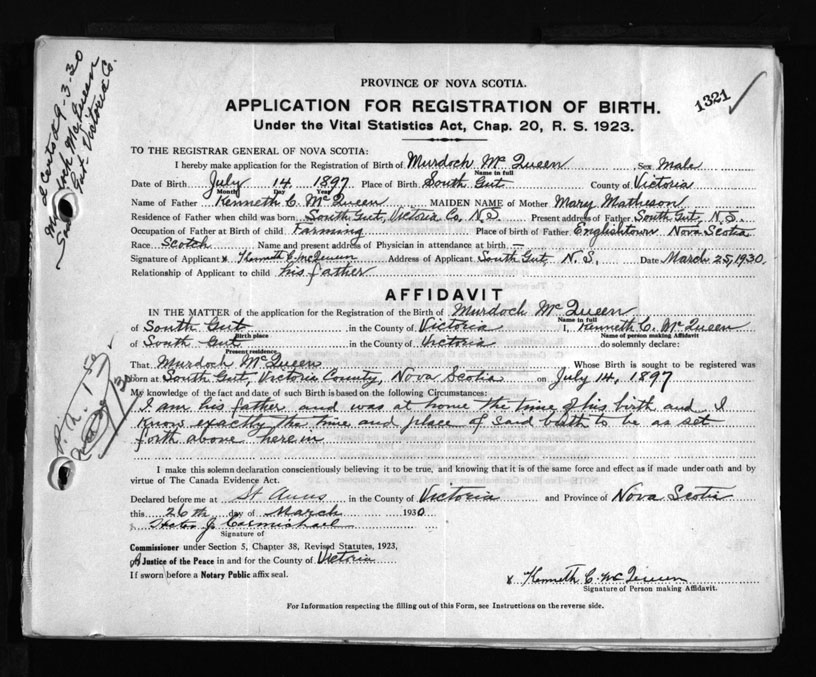 PROVINCE OF NOVA SCOTIA.
1321
APPLICATION FOR REGISTRATION OF BIRTH.
Under the Vital Statistics Act, Chap. 20, R. S. 1923.
TO THE REGISTRAR GENERAL OF NOVA SCOTIA:
I hereby make application for the Registration of Birth of Murdoch McQueen Sex Male
Name in full
Date of Birth July 14 1897 Place of Birth South Gut County of Victoria
Month Day Year
Name of Father Kenneth C. McQueen MAIDEN NAME of Mother Mary Matheson
Residence of Father when child was born South Gut, Victoria Co, N.S. Present address of Father South Gut, N.S.
Occupation of Father at Birth of child Farming Place of Birth of Father Englishtown Nova Scotia
Race Scotch Name and present address of Physician in attendance at birth —
Signature of Applicant x Kenneth C. McQueen Address of Applicant South Gut, N.S. Date March 25, 1930.
Relationship of Applicant to child his father
AFFIDAVIT
IN THE MATTER of the application for the Registration of the Birth of Murdoch McQueen
Name in full
of South Gut in the County of Victoria I, Kenneth C. McQueen
Birth place Name of person making Affidavit
of South Gut in the County of Victoria do solemnly declare:
Present residence
That Murdoch McQueen Whose Birth is sought to be registered was
born at South Gut, Victoria County, Nova Scotia on July 14, 1897
My knowledge of the fact and date of such Birth is based on the following Circumstances:
I am his father and was at home the time of his birth and I
know exactly the time and place of said birth to be as set
forth above herein
I make this solemn declaration conscientiously believing it to be true, and knowing that it is of the same force and effect as if made under oath and by
virtue of The Canada Evidence Act.
Declared before me at St Anns in the County of Victoria and Province of Nova Scotia
this 26th day of March 1930
J. Carmichael
Signature of
Commissioner under Section 5, Chapter 38, Revised Statutes, 1923,
A Justice of the Peace in and for the County of Victoria
If sworn before a Notary Public affix seal.
x Kenneth C. McQueen
Signature of Person making Affidavit.
For Information respecting the filling out of this Form, see Instructions on the reverse side.
9-3-30
Murdoch McQueen
South Gut - Victoria Co.